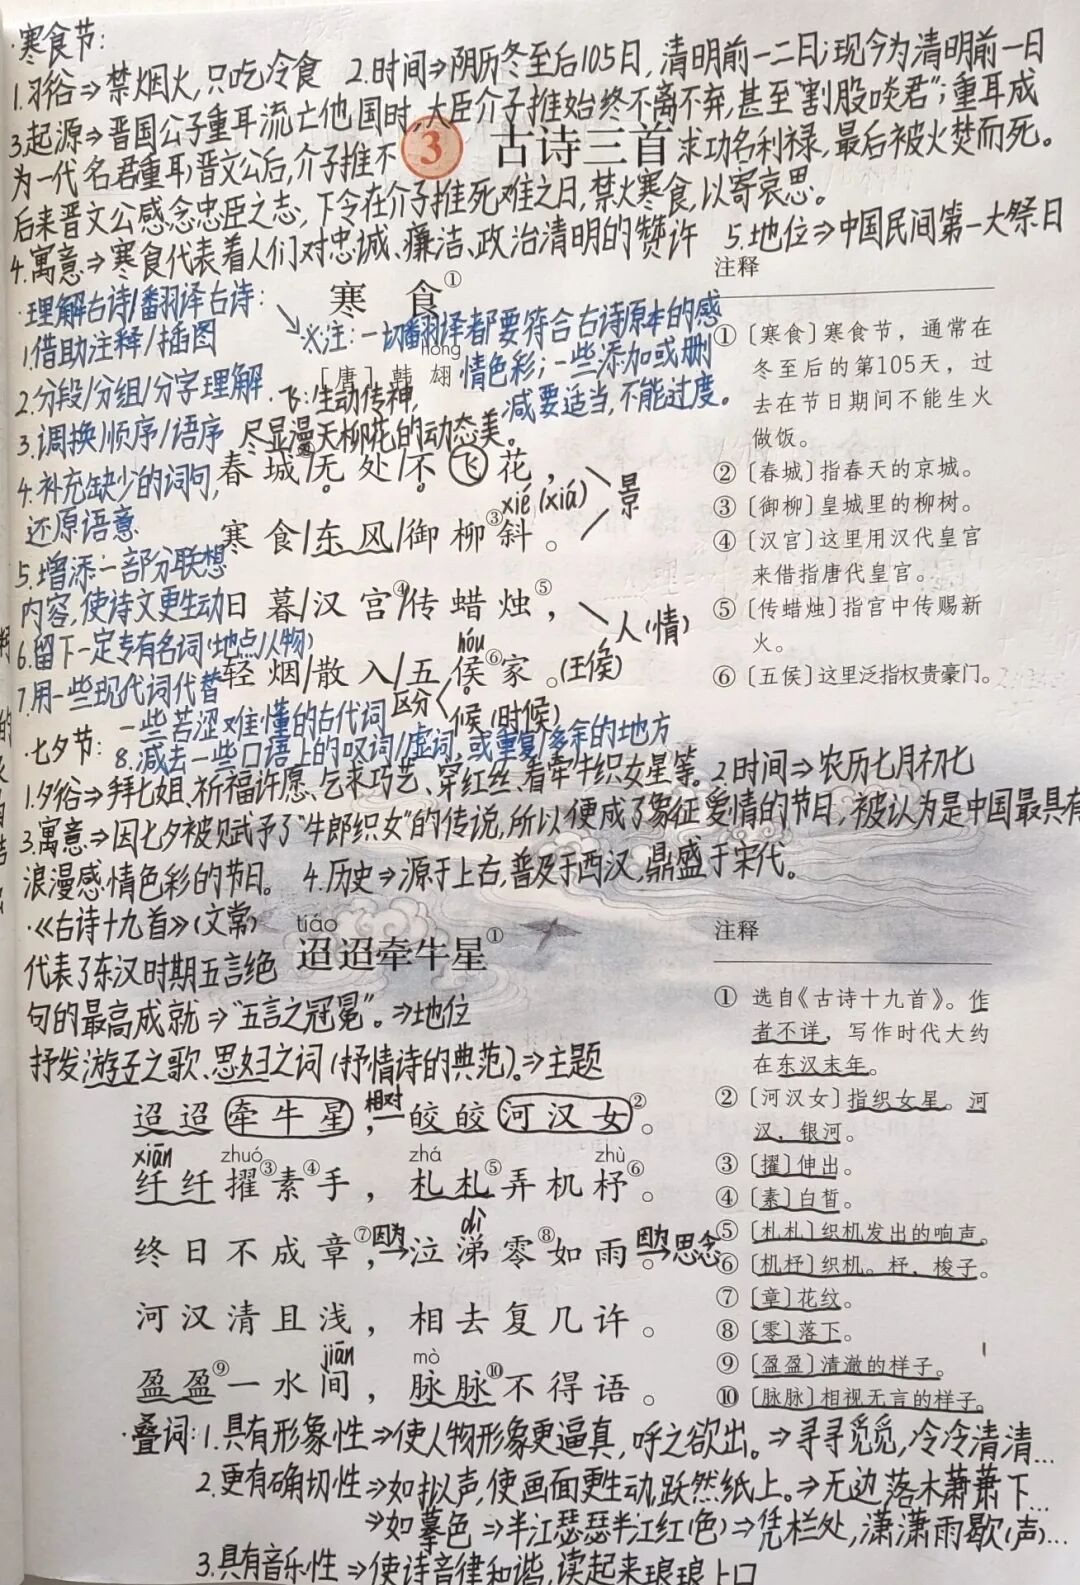 ·寒食节:
1.习俗⇒禁烟火,只吃冷食 2.时间⇒阴历冬至后105日,清明前一二日;现今为清明前一日
3.起源⇒晋国公子重耳流亡他国时,大臣介子推始终不离不弃,甚至"割股啖君";重耳成
为一代名君重耳)晋文公后,介子推不求功名利禄,最后被火焚而死。
3 古诗三首
后来晋文公感念忠臣之志,下令在介子推死难之日,禁火寒食,以寄哀思。
4.寓意⇒寒食代表着人们对忠诚、廉洁、政治清明的赞许 5.地位⇒中国民间第一大祭日
·理解古诗/翻译古诗:
1.借助注释/插图
2.分段/分组/分字理解
3.调换顺序/语序
4.补充缺少的词句,
还原语意
5.增添一部分联想
内容,使诗文更生动
6.留下一定专有名词(地点/人物)
7.用一些现代词代替
一些苦涩难懂的古代词
8.减去一些口语上的叹词/虚词,或重复/多余的地方
※注:一切翻译者都要符合古诗原本的感
情色彩;一些添加或删
减要适当,不能过度。
寒食①
hóng
[唐]韩翃
·飞:生动传神,
尽显漫天柳花的动态美。
春城②/无处/不飞花,
xié(xiá)
寒食/东风/御柳③斜。
景
日暮/汉宫④/传蜡烛⑤,
人(情)
hóu
轻烟/散入/五侯⑥家。(王侯)
区分
候(时候)
注释
①〔寒食〕寒食节,通常在
冬至后的第105天,过
去在节日期间不能生火
做饭。
②〔春城〕指春天的京城。
③〔御柳〕皇城里的柳树。
④〔汉宫〕这里用汉代皇宫
来借指唐代皇宫。
⑤〔传蜡烛〕指宫中传赐新
火。
⑥〔五侯〕这里泛指权贵豪门。
·七夕节:
1.夕俗⇒拜七姐、祈福许愿、乞求巧艺、穿红丝、看牵牛织女星等。2时间⇒农历七月初七
3.寓意⇒因七夕被赋予了"牛郎织女"的传说,所以便成了象征爱情的节日,被认为是中国最具有
浪漫感情色彩的节日。 4.历史⇒源于上古,普及于西汉,鼎盛于宋代。
·《古诗十九首》(文常)
代表了东汉时期五言绝
句的最高成就⇒"五言之冠冕"。⇒地位
抒发游子之歌、思妇之词(抒情诗的典范)。⇒主题
tiáo
迢迢牵牛星①
相对
迢迢牵牛星,皎皎河汉女②。
xiān zhuó zhá zhù
纤纤擢③素④手,札札⑤弄机杼⑥。
因为 tì 因为
终日不成章⑦,泣涕零⑧如雨。思念
河汉清且浅,相去复几许。
jiān mò
盈盈⑨一水间,脉脉⑩不得语。
注释
① 选自《古诗十九首》。作
者不详,写作时代大约
在东汉末年。
②〔河汉女〕指织女星。河
汉,银河。
③〔擢〕伸出。
④〔素〕白皙。
⑤〔札札〕织机发出的响声。
⑥〔机杼〕织机。杼,梭子。
⑦〔章〕花纹。
⑧〔零〕落下。
⑨〔盈盈〕清澈的样子。
⑩〔脉脉〕相视无言的样子。
·叠词:1.具有形象性⇒使人物形象更逼真,呼之欲出。⇒寻寻觅觅,冷冷清清…
2.更有确切性⇒如拟声,使画面更生动,跃然纸上。⇒无边落木萧萧下…
⇒如摹色⇒半江瑟瑟半江红(色)⇒凭栏处,潇潇雨歇(声)…
3.具有音乐性⇒使诗音律和谐,读起来琅琅上口